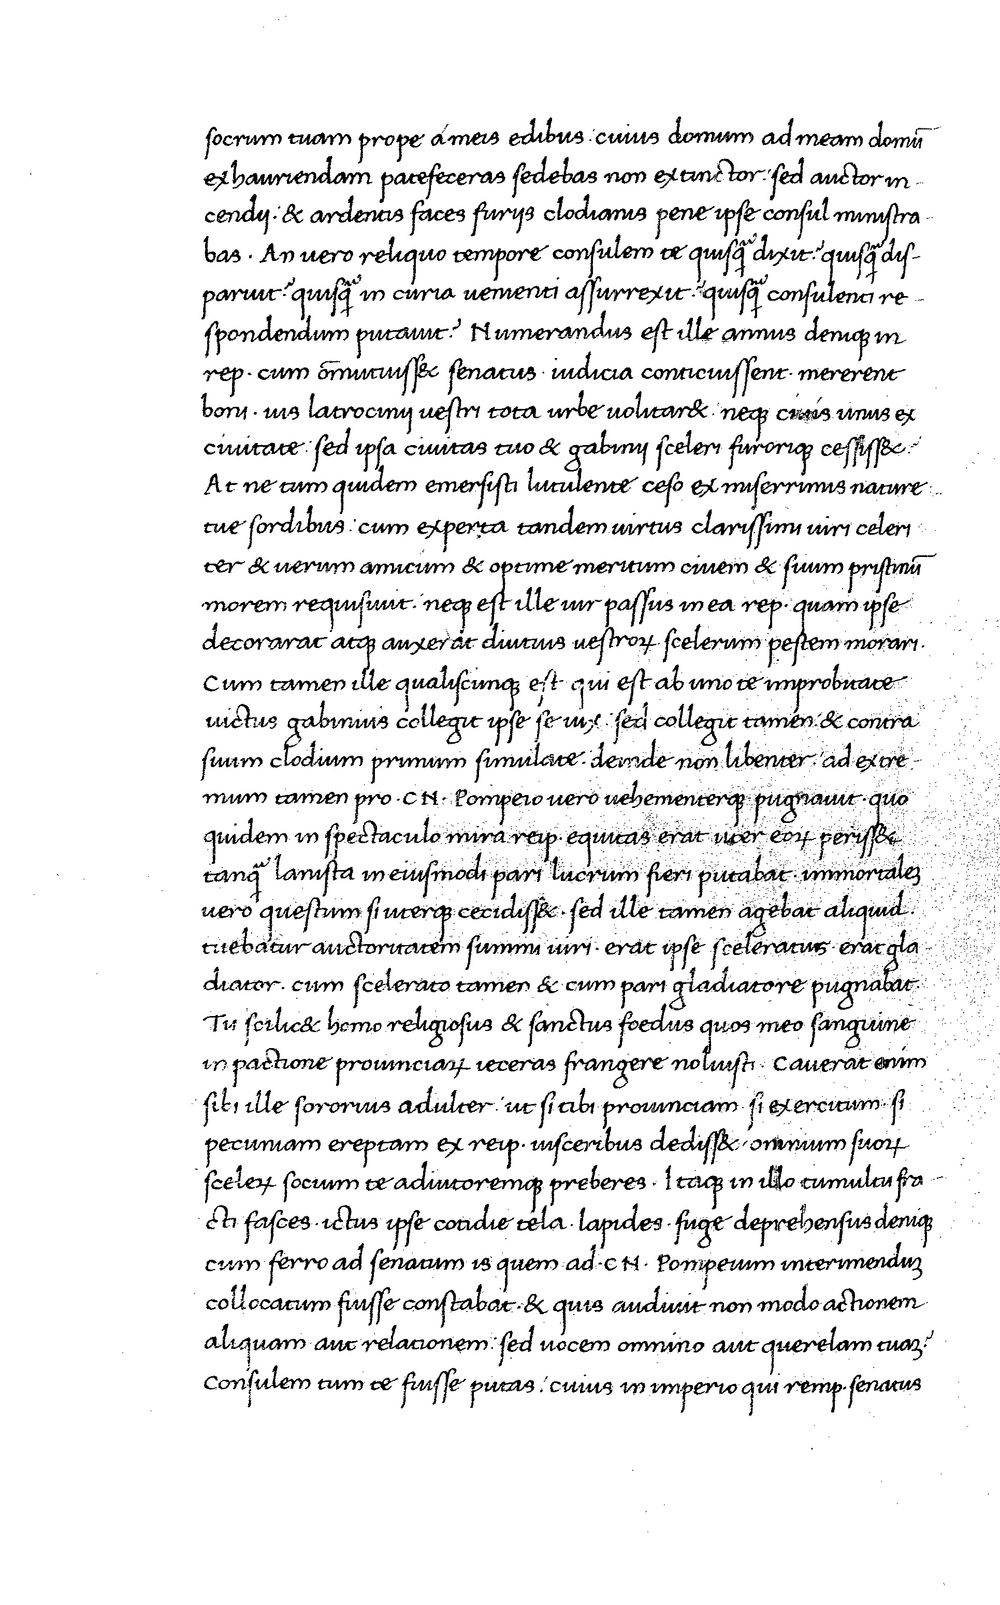 socrum tuam prope á meis edibus : cuius domum ad meam domū
exhauriendam patefeceras sedebas non extinctor : sed auctor in-
cendij : & ardentis faces furijs clodianis pene ipse consul ministra-
bas . An uero reliquo tempore consulem te quisq̃ dixit ? quisq̃ dis-
paruit ? quisq̃ in curia uenienti assurrexit ? quisq̃ consulenti re-
spondendum putauit ? Numerandus est ille annus deniqꝫ in
rep . cum om̄utuiss& senatus . iudicia conticuissent . mererent
boni . uis latrocinij uestri tota urbe uolitar& : neqꝫ ciuis unus ex
ciuitate : sed ipsa ciuitas tuo & gabinij sceleri furoriqꝫ cessiss& :
At ne tum quidem emersisti lutulente ceso ex miserrimis nature
tue sordibus : cum experta tandem uirtus clarissimi uiri celeri
ter & uerum amicum & optime meritum ciuem & suum pristinū
morem requisiuit . neqꝫ est ille uir passus in ea rep . quam ipse
decorarat atqꝫ auxerat diutius uestroꝝ scelerum pestem morari .
Cum tamen ille qualiscunqꝫ est qui est ab uno te improbitate
uictus gabinius collegit ipse se uix : sed collegit tamen : & contra
suum clodium primum simulate . deinde non libenter : ad extre-
mum tamen pro . CN . Pompeio uero uehementerqꝫ pugnauit . quo
quidem in spectaculo mira reip . equitas erat uter eoꝝ periss&
tanq̃ lanista in eiusmodi pari lucrum fieri putabat . immortaleꝫ
uero questum si uterqꝫ cecidiss& . sed ille tamen agebat aliquid .
tuebatur auctoritatem summi uiri . erat ipse sceleratus . erat gla-
diator . cum scelerato tamen & cum pari gladiatore pugnabat .
Tu scilic& homo religiosus & sanctus foedus quos meo sanguine
in pactione prouinciaꝝ ieceras frangere noluisti . Cauerat enim
sibi ille sororius adulter : ut si tibi prouinciam si exercitum . si
pecuniam ereptam ex reip . uisceribus dediss& . omnium suoꝝ
sceleꝝ socium te adiutoremqꝫ preberes . Itaqꝫ in illo tumultu fra-
cti fasces . ictus ipse cotidie tela . lapides . fuge deprehensus deniqꝫ
cum ferro ad senatum is quem ad . CN . Pompeium interimenduꝫ
collocatum fuisse constabat . & quis audiuit non modo actionem
aliquam aut relationem : sed uocem omnino aut querelam tuaꝫ ?
Consulem tum te fuisse putas : cuius in imperio qui remp . senatus